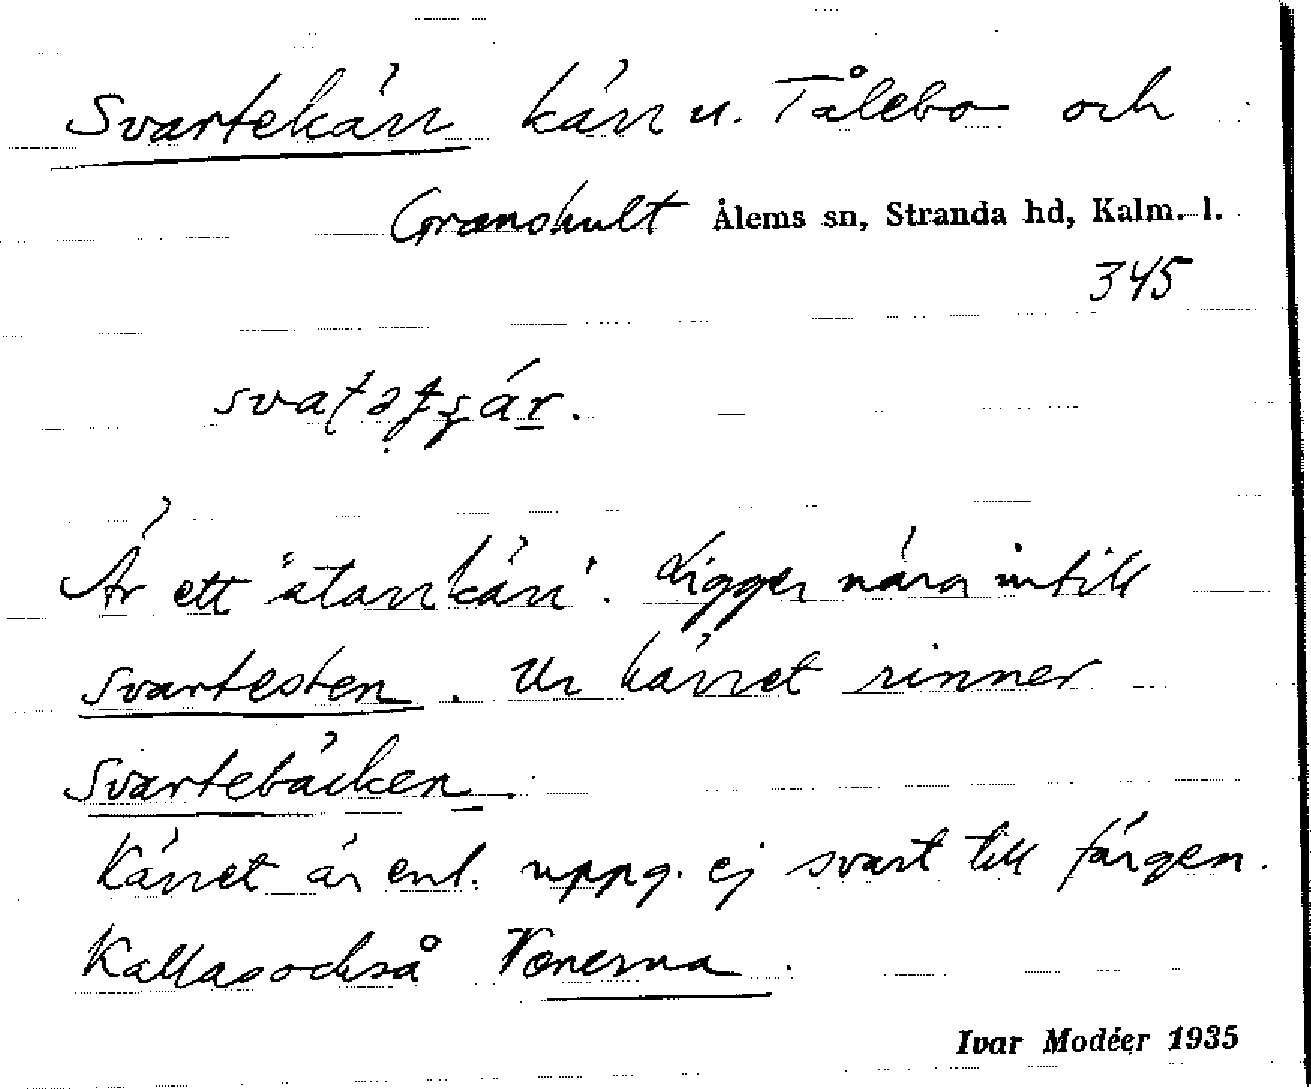 Svartekärr kärr u. Tålebo och
Granshult Ålems sn, Stranda hd, Kalm. l.
345
Är ett "starrkärr". Ligger nära intill
Svartesten. Ur kärret rinner
Svartebäcken.
Kärret är enl. uppg. ej svart till färgen.
Kallas också
Ivar Modéer 1935